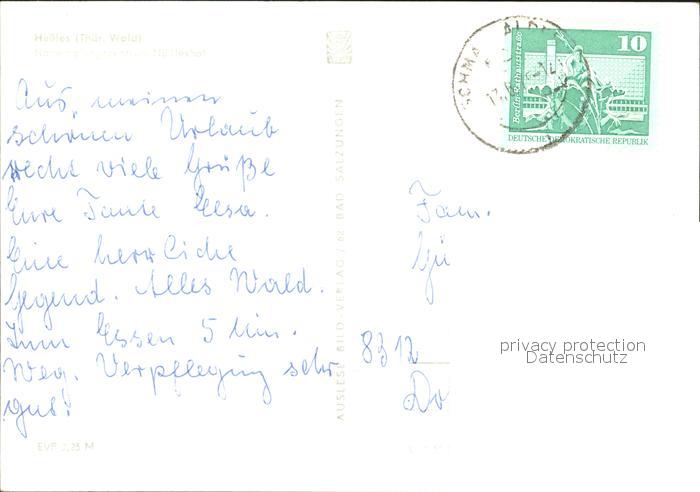 Heßles (Thür. Wald)
Aus meinen
schönen Urlaub
recht viele Grüße
Eure Tante Elsa.
Eine herrliche
Gegend. Alles Wald.
Zum Essen 5 Min.
Weg. Verpflegung sehr
gut!
EVP 0,25 M
AUSLESE-BILD-VERLAG / 62 BAD SALZUNGEN
SCHMALKALDEN
Berlin, Rathausstraße
10
DEUTSCHE DEMOKRATISCHE REPUBLIK
Fam.
Gü
8312
Do
privacy protection
Datenschutz